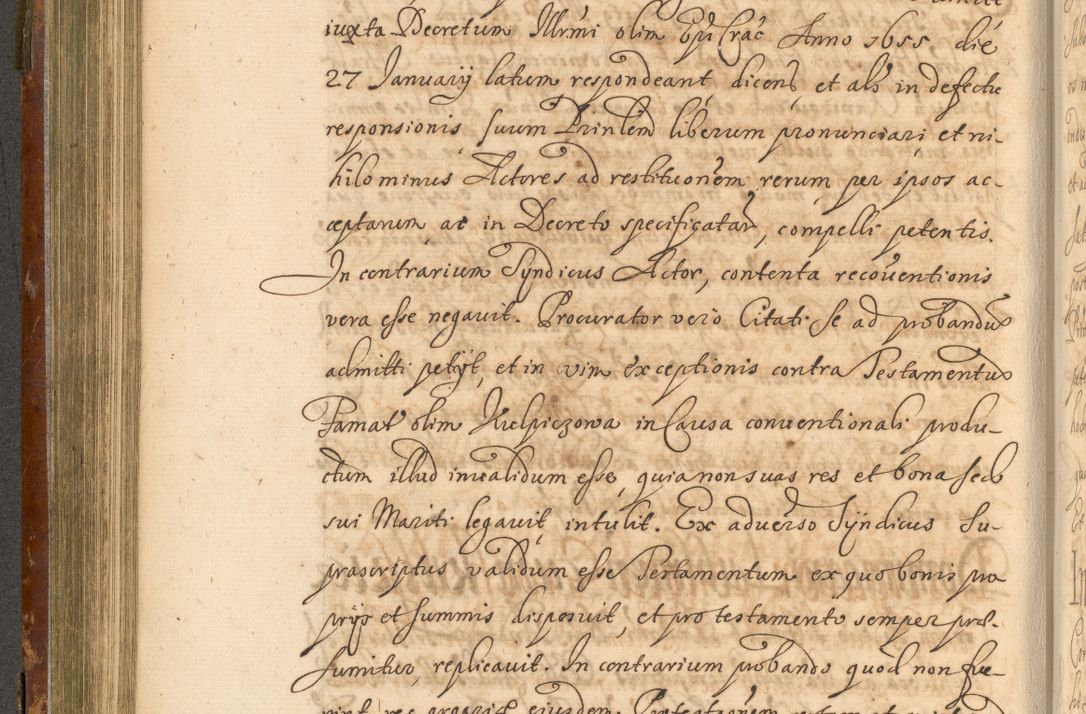 iuxta Decretum Illrmi olim Epi Crac Anno 1655 die
27 Januarij latum respondeant, dicens et als in defectu
responsionis, suum Prinlem liberum pronunciari, et ni-
hilominus Actores ad restituonem rerum per ipsos ac-
ceptarum, ac in Decreto specificatar, compelli petentis.
In contrarium Syndicus Actor, contenta reconventionis
vera esse negavit. Procurator vero Citati se ad probandum
admitti petijt, et in vim exceptionis contra Testamentum
Famat olim Kielpiczowa in Causa conventionali produ-
ctum illud invalidum esse, quia non suas res et bona sed
sui Mariti legavit, intulit. Ex adverso Syndicus Su-
prascriptus validum esse Testamentum ex quo bonis pro
prijs et summis disposuit, et pro testamento semper præ-
sumitur, replicavit. In contrarium probando quod non fue-
rint eiusdem